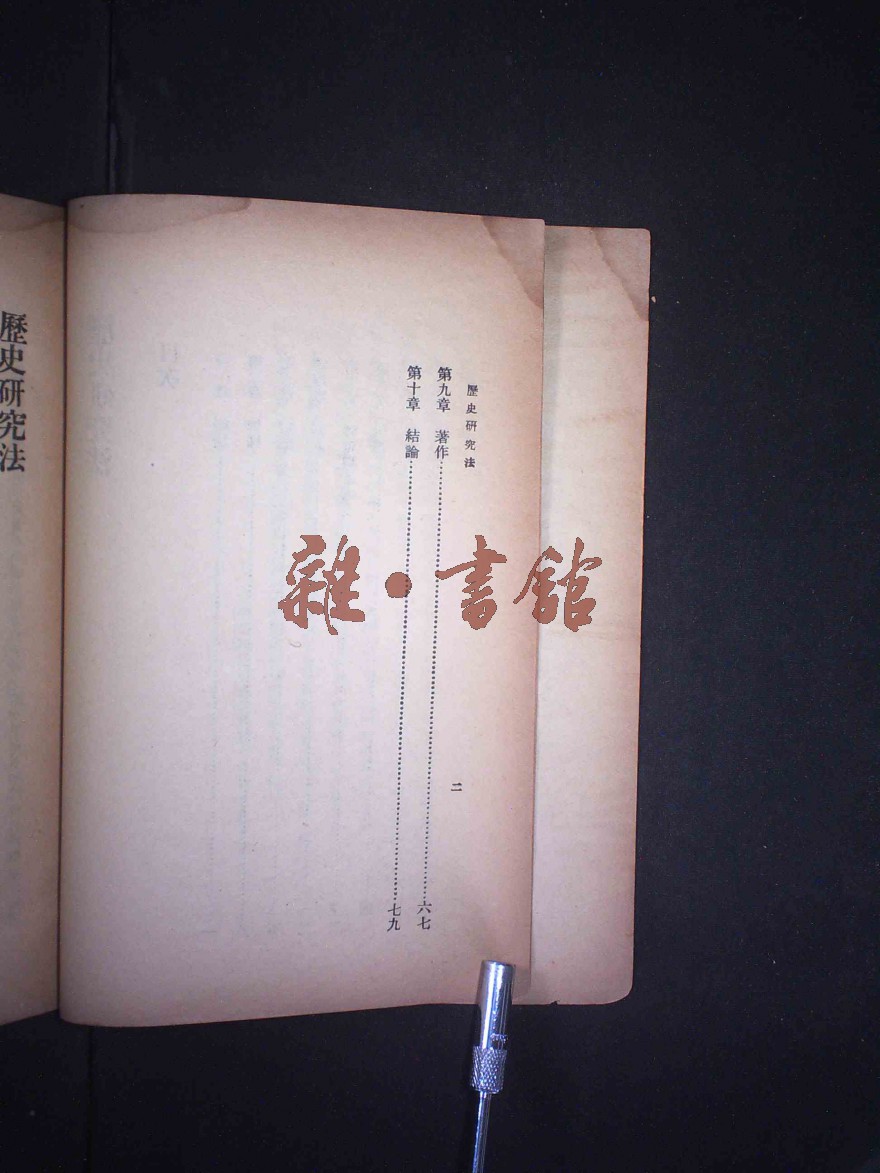 歷史研究法
第九章 著作……六七
第十章 結論……七九
二
歷史研究法
雜·書館